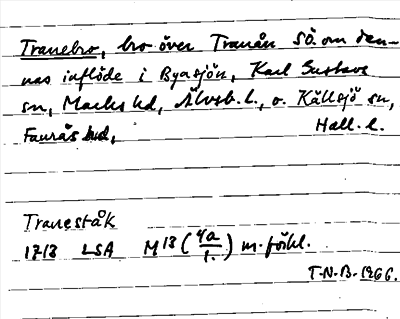 Tranebro, bro över Tranån sö. om den-
nas inflöde i Byasjön, Karl Gustavs
sn, Marks hd, Älvsb. l., o. Källsjö sn,
Faurås hd, Hall. l.
Traneståk
1713 LSA M 13 (4a/1.) m. förkl.
T.N.B. 1966.